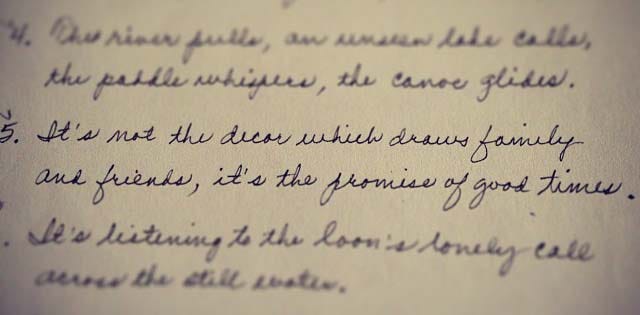 4. The river pulls, an unseen lake calls,
the paddle whispers, the canoe glides.
5. It's not the decor which draws family
and friends, it's the promise of good times.
. It's listening to the loon's lonely call
across the still water.